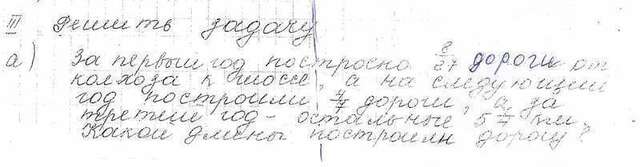 III Решить задачу
а) За первый год построено 8/27 дороги от
колхоза к шоссе, а на следующий
год построили 4/9 дороги, а за
третий год - остальные 5 км.
Какой длины построили дорогу?